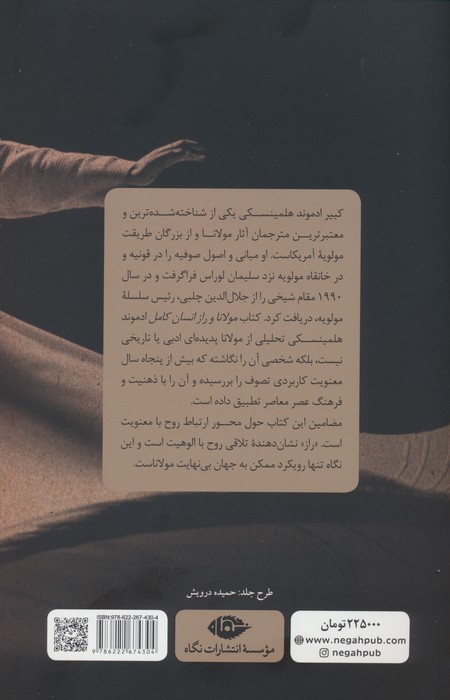 کبیر ادموند هلمینسکی یکی از شناخته‌شده‌ترین و
معتبرترین مترجمان آثار مولانا و از بزرگان طریقت
مولویهٔ آمریکاست. او مبانی و اصول صوفیه را در قونیه و
در خانقاه مولویه نزد سلیمان لوراس فراگرفت و در سال
۱۹۹۰ مقام شیخی را از جلال‌الدین چلبی، رئیس سلسلهٔ
مولویه، دریافت کرد. کتاب مولانا و راز انسان کامل ادموند
هلمینسکی تحلیلی از مولانا پدیده‌ای ادبی یا تاریخی
نیست، بلکه شخصی آن را نگاشته که بیش از پنجاه سال
معنویت کاربردی تصوف را بررسیده و آن را با ذهنیت و
فرهنگ عصر معاصر تطبیق داده است.
مضامین این کتاب حول محور ارتباط روح با معنویت
است. «راز» نشان‌دهندهٔ تلاقی روح با الوهیت است و این
نگاه تنها رویکرد ممکن به جهان بی‌نهایت مولاناست.
طرح جلد: حمیده درویش
ISBN:978-622-267-430-4
9 786222 674304
مؤسسهٔ انتشارات نگاه
۲۲۵۰۰۰ تومان
www.negahpub.com
negahpub